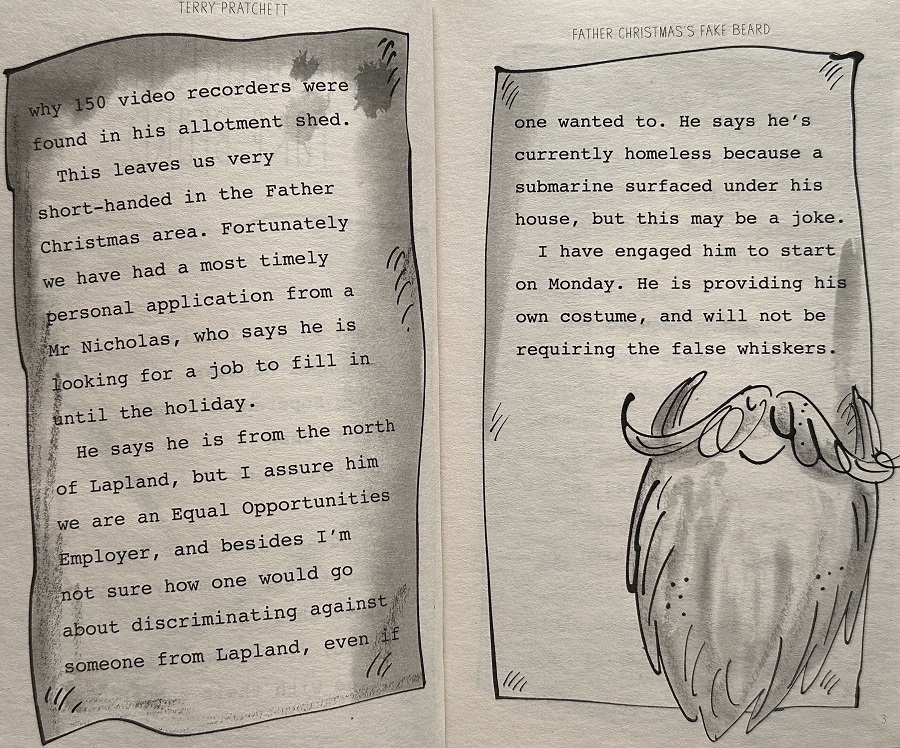 TERRY PRATCHETT
why 150 video recorders were
found in his allotment shed.
This leaves us very
short-handed in the Father
Christmas area. Fortunately
we have had a most timely
personal application from a
Mr Nicholas, who says he is
looking for a job to fill in
until the holiday.
He says he is from the north
of Lapland, but I assure him
we are an Equal Opportunities
Employer, and besides I'm
not sure how one would go
about discriminating against
someone from Lapland, even if
FATHER CHRISTMAS'S FAKE BEARD
one wanted to. He says he's
currently homeless because a
submarine surfaced under his
house, but this may be a joke.
I have engaged him to start
on Monday. He is providing his
own costume, and will not be
requiring the false whiskers.
3